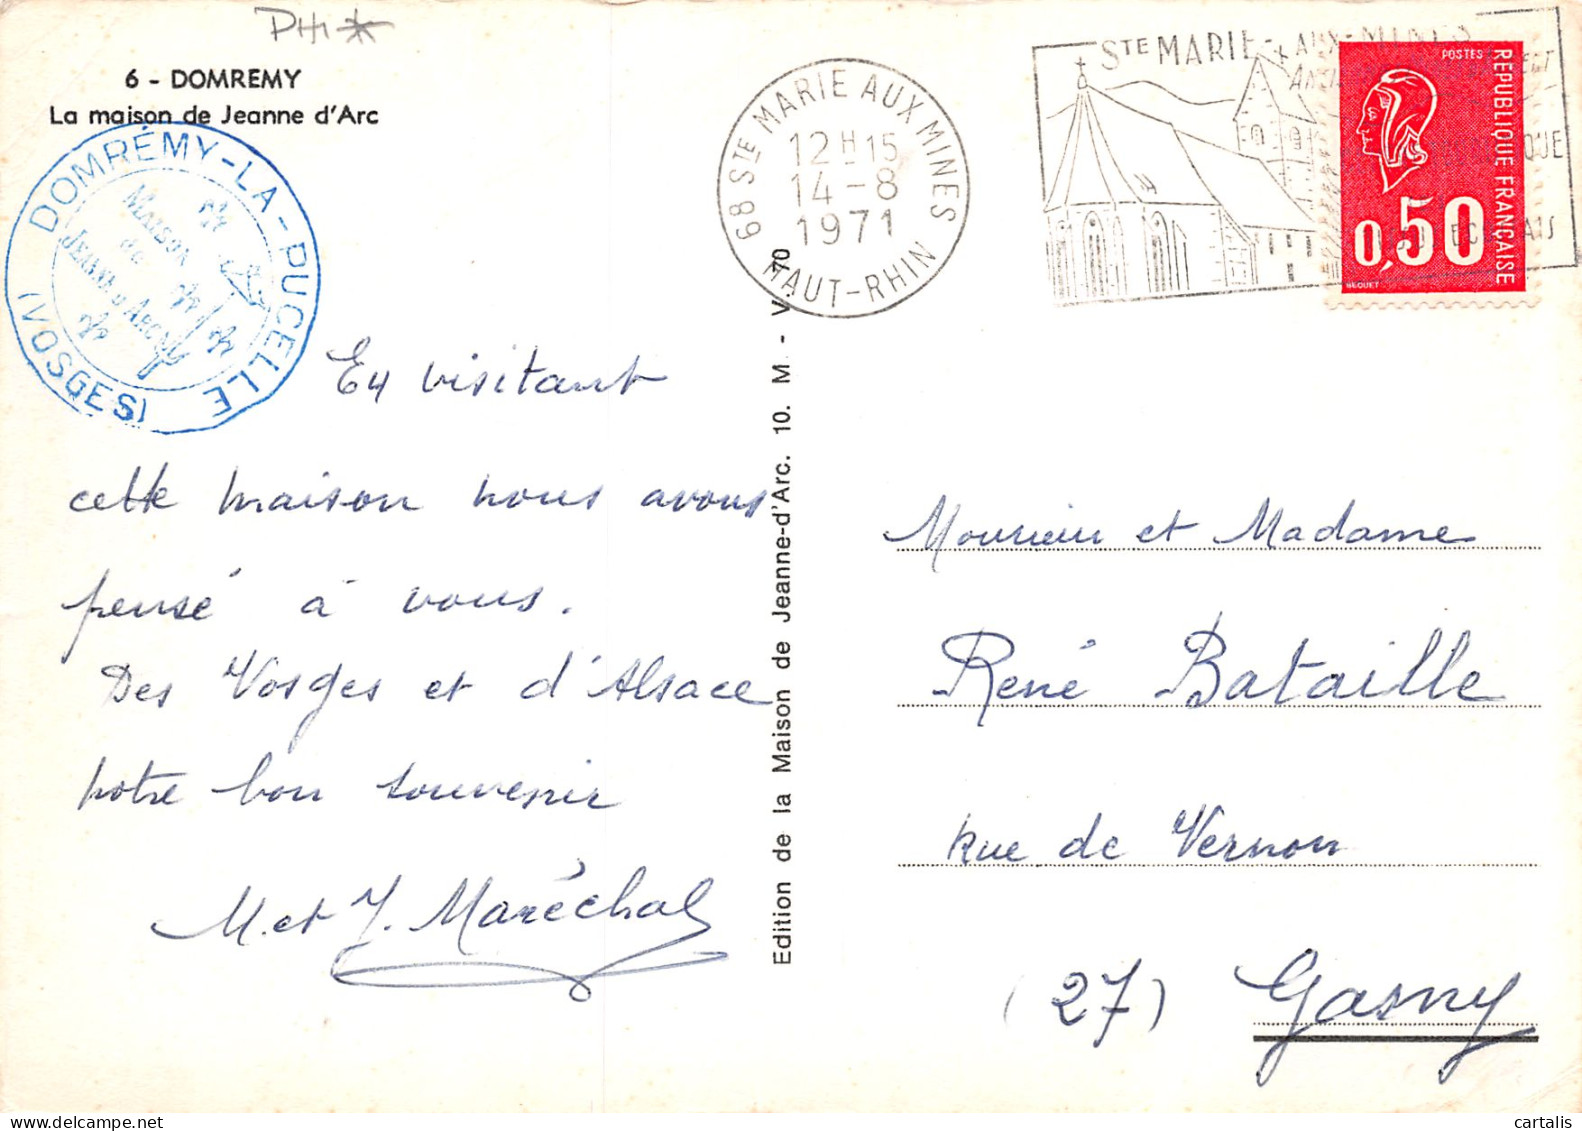 PHI*
6 - DOMREMY
La maison de Jeanne d'Arc
DOMRÉMY-LA-PUCELLE
(VOSGES)
MAISON
de
JEANNE d'ARC
En visitant
cette maison nous avons
pensé à vous.
Des Vosges et d'Alsace
notre bon souvenir
M. et J. Maréchal
Edition de la Maison de Jeanne-d'Arc. 10. M. - V. 70
68 STE MARIE AUX MINES
12H15
14-8
1971
HAUT-RHIN
STE MARIE-AUX-MINES
POSTES
REPUBLIQUE FRANÇAISE
0,50
BEQUET
Monsieur et Madame
René Bataille
rue de Vernon
(27) Gasny
cartalis